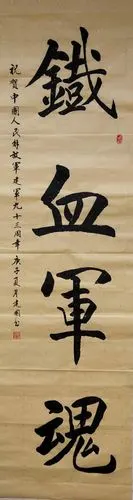 鐵血軍魂
祝賀中國人民解放軍建軍九十三周年 庚子夏月建國書